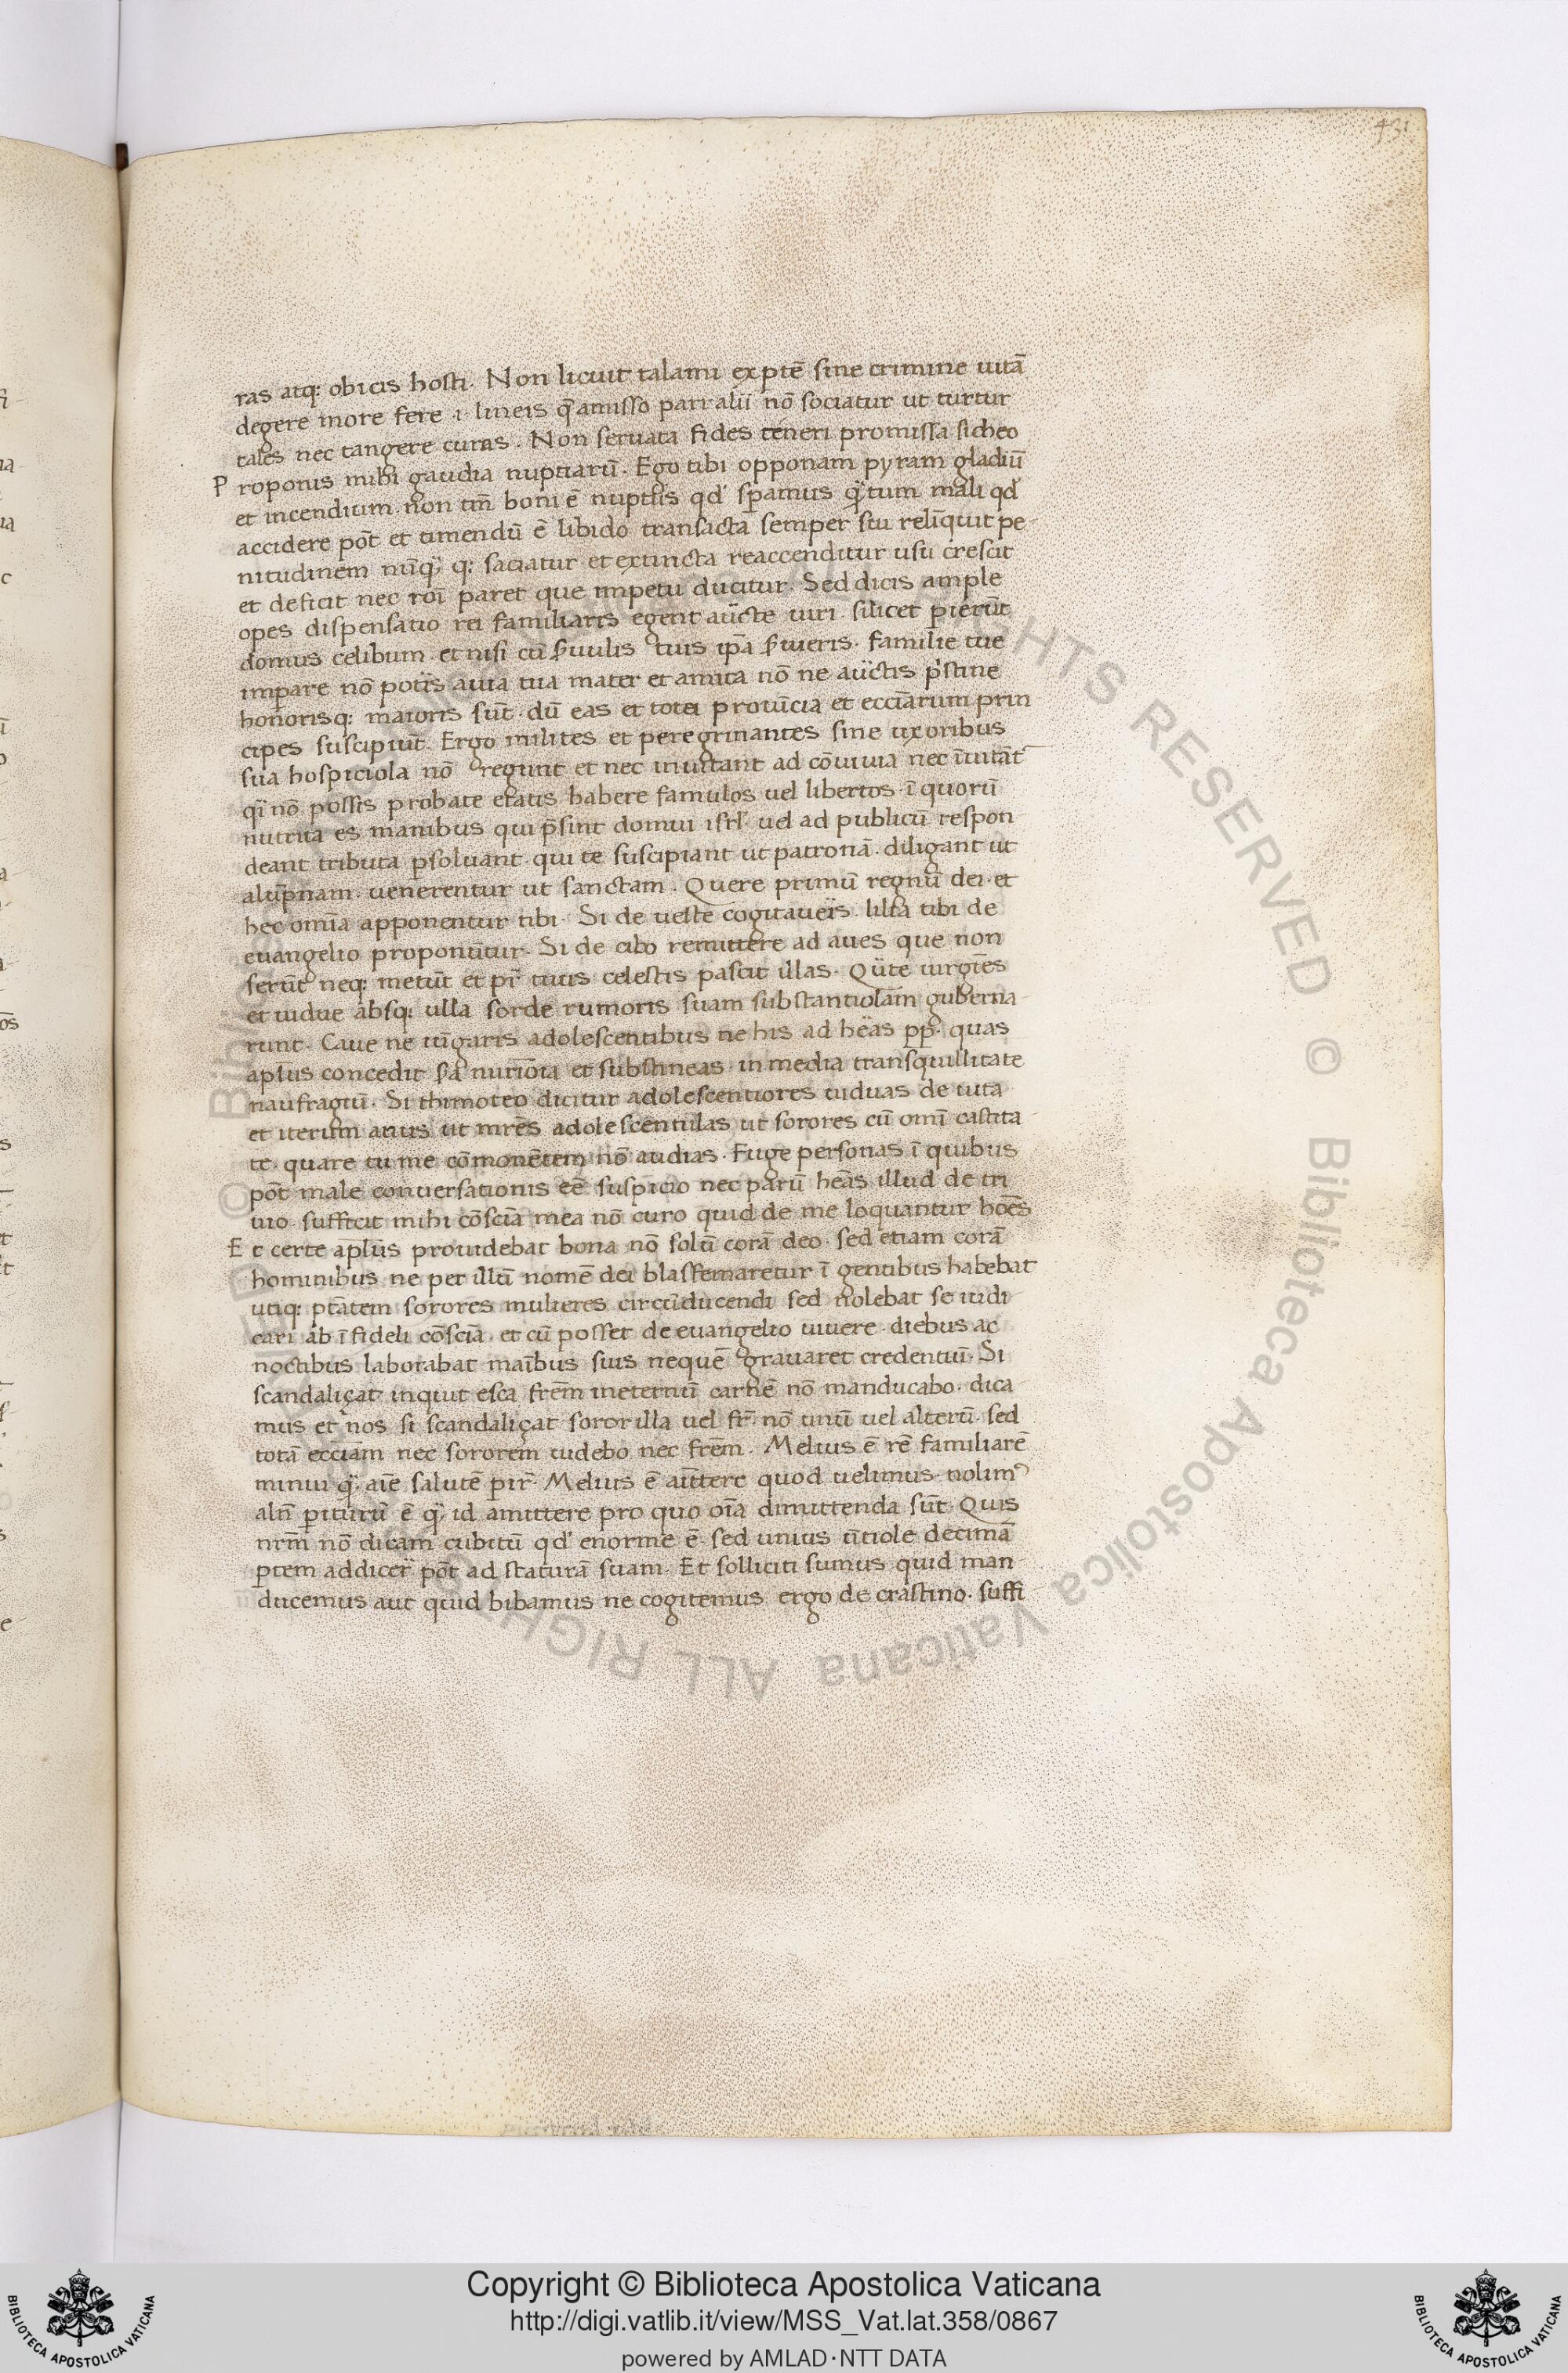 431
ras atq: obicis hosti. Non licuit talami exptē sine crimine uitā
degere more fere i lineis q̄ amisso pari alii nō sociatur ut turtur
tales nec tangere curas. Non seruata fides teneri promissa sicheo
Proponis mihi gaudia nuptiarū. Ego tibi opponam pyram gladiū
et incendium. non tm̄ boni ē nuptiis qd' speramus quātum mali qd'
accidere pōt et timendū ē libido transacta semper sui relīquit pe
nitudinem nūq̄ q: saciatur et extincta reaccenditur usu crescit
et deficit nec rōi paret que impetu ducitur. Sed dicis ample
opes dispensatio rei familiaris egent aūcte uiri. silicet perierūt
domus celibum. et nisi cū seruulis tuis ipā seruieris. familie tue
imperare nō poteris auia tua mater et amita nō ne aūctis p̄stine
honorisq: maioris sūt. dū eas et totei prouīcia et ecc̄iarum prin
cipes suscipiūt. Ergo milites et peregrinantes sine uxoribus
sua hospiciola nō regunt et nec inuitant ad cōuiuia nec īuitāt
q̄i nō possis probate etatis habere famulos uel libertos. ī quorū
nutrita es manibus qui p̄sint domui isrl' uel ad publicū respon
deant tributa persoluant. qui te suscipiant ut patronā. diligant ut
alūpnam. uenerentur ut sanctam. Quere primū regnū dei. et
hec omīa apponentur tibi. Si de ueste cogitaueris. lilia tibi de
euangelio proponūtur. Si de cibo remittere ad aues que non
serūt neq: metūt et pr̄ tuus celestis pascit illas. Quāte uirgīes
et uidue absq: ulla sorde rumoris suam substantiolam guberna
runt. Caue ne iūgaris adolescentibus ne his ad hēas pp. quas
aplus concedit secunda mrīonia et substineas in media transquillitate
naufragiū. Si thimoteo dicitur adolescentiores uiduas de uita
et iterum anus ut mr̄es adolescentulas ut sorores cū omī castita
te. quare tu me cōmonētem nō audias. Fuge personas ī quibus
pōt male conuersationis eē suspicio nec parū hēas illud de tri
uio. sufficit mihi cōsciā mea nō curo quid de me loquantur hoēs
Et certe aplūs prouidebat bona nō solū corā deo. sed etiam corā
hominibus ne per illū nomē dei blasfemaretur ī gentibus habebat
utiq: ptātem sorores mulieres circūducendi sed nolebat se iudi
cari ab īfideli cōsciā. et cū posset de euangelio uiuere. diebus ac
noctibus laborabat maībus suis nequē grauaret credentiū. Si
scandaliçat inquit esca frēm ineternū carnē nō manducabo. dica
mus et nos si scandaliçat soror illa uel fr̄. nō unū uel alterū. sed
totā ecc̄iam nec sororem uidebo nec frēm. Melius ē rē familiarē
minui q̄. aīe salutē perir̄. Melius ē amīttere quod uelimus nolim9
aln̄ periturū ē q̄. id amittere pro quo oīa dimittenda sūt. Quis
nr̄m nō dicam cubitū qd' enorme ē. sed unius ūtiole decimā
partem addicere pōt ad staturā suam. Et solliciti sumus quid man
ducemus aut quid bibamus ne cogitemus ergo de crastino. suffi
Copyright © Biblioteca Apostolica Vaticana
http://digi.vatlib.it/view/MSS_Vat.lat.358/0867
powered by AMLAD·NTT DATA
BIBLIOTECA APOSTOLICA VATICANA
BIBLIOTECA APOSTOLICA VATICANA
© Biblioteca Apostolica Vaticana ALL RIGHTS RESERVED